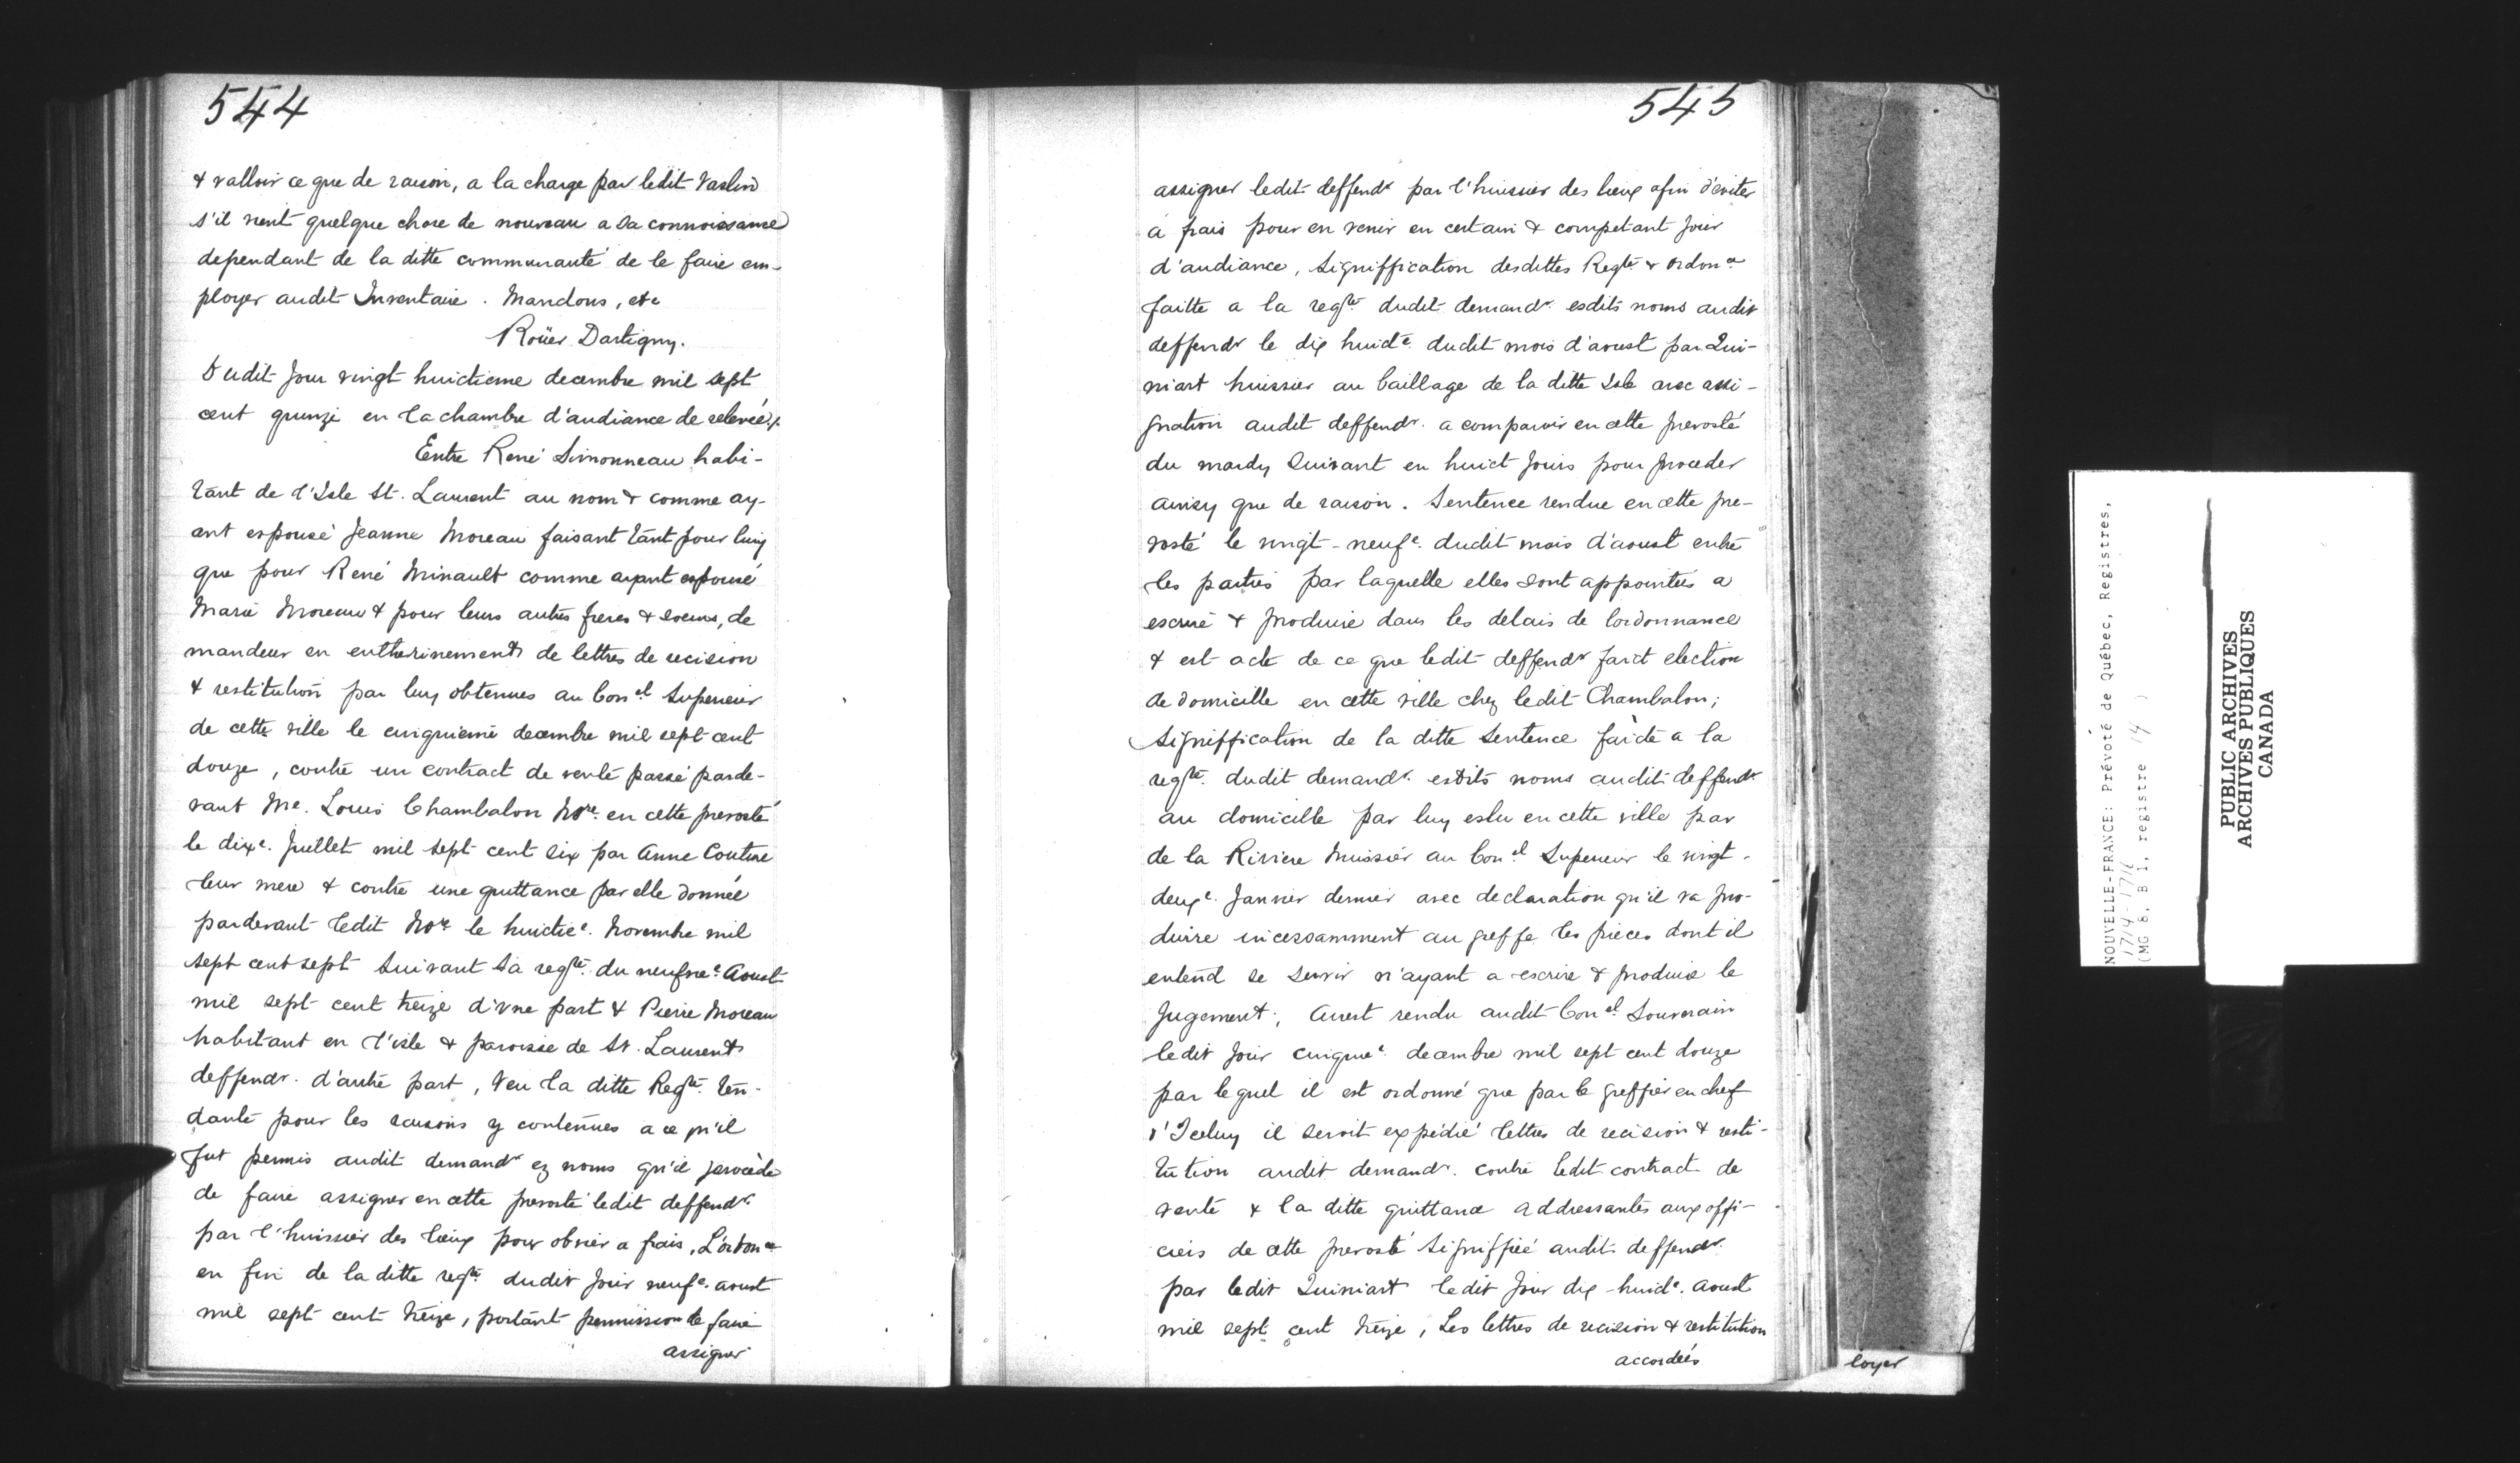 544
& valloir ce que de raison, a la charge par ledit Vaslin
s'il vient quelque chose de nouveau a sa connoissance
dependant de la ditte communauté de le faire em-
ployer audit Inventaire. Mandons, etc
Roüer Dartigny.
Dudit Jour vingt huictieme decembre mil sept
cent quinze en la chambre d'audiance de relevée./.
Entre René Simonneau habi-
tant de l'Isle St. Laurent au nom & comme ay-
ant espousé Jeanne Moreau faisant tant pour luy
que pour René Minault comme ayant espousé
Marie Moreau & pour leurs autres freres & soeurs, de
mandeur en entherinement de lettres de recision
& restitution par luy obtenues au Con.el Superieur
de cette ville le cinquieme decembre mil sept cent
douze, contre un contract de vente passé parde-
vant Me. Louis Chambalon Nore. en cette prevosté
le dixe. Juillet mil sept cent six par Anne Couture
leur mere & contre une quittance par elle donnée
pardevant ledit Nore le huictiee. Novembre mil
sept cent sept suivant sa reqte. du neufvee. Aoust
mil sept cent treize d'vne part & Pierre Moreau
habitant en l'isle & paroisse de St. Laurent
deffendr. d'autre part, Veu la ditte Reqte. ten-
dante pour les raisons y contenues a ce qu'il
fut permis audit demandr ez noms qu'il procède
de faire assigner en cette prevosté ledit deffendr
par l'huissier des lieux pour obvier a frais, L'ordonce
en fin de la ditte reqte. dudit Jour neufe. aoust
mil sept cent treize, portant permission de faire
assigner
545
assigner ledit deffendr par l'huissier des lieux afin d'eviter
à frais pour en venir en certain & competant Jour
d'audiance, Signiffication desdittes Reqte. & Ordonce
faitte a la reqte. dudit demandr. esdits noms audit
deffendr le dix huicte. dudit mois d'aoust par Qui-
niart huissier au baillage de la ditte Isle avec assi-
gnation audit deffendr. a comparoir en cette prevosté
du mardy Suivant en huict Jours pour proceder
ainsy que de raison. Sentence rendue en cette pre-
vosté le vingt-neufe. dudit mois d'aoust entre
les parties par laquelle elles sont appointées a
escrire & produire dans les delais de lordonnance
& est acte de ce que ledit deffendr faict election
de domicille en cette ville chez ledit Chambalon;
Signiffication de la ditte Sentence faicte a la
reqte. dudit demandr. esdits noms audit deffendr
au domicille par luy eslu en cette ville par
de la Riviere huissier au Con.el Superieur le vingt-
deuxe. Janvier dernier avec declaration qu'il va pro-
duire incessamment au greffe les pieces dont il
entend se servir n'ayant a escrire & produire le
Jugement; Arrest rendu audit Con.el Souverain
ledit Jour cinquee. decembre mil sept cent douze
par lequel il est ordonné que par le greffier en chef
d'Iceluy il seroit expedié lettres de recision & resti-
tution audit demandr. contre ledit contract de
vente & la ditte quittance addressantes aux offi-
ciers de cette prevosté signiffiée audit deffendr.
par ledit Quiniart ledit Jour dix-huicte. aoust
mil sept cent treize, Les lettres de recision & restitution
accordées
loyer
NOUVELLE-FRANCE: Prévoté de Québec, Registres,
1714-1716
(MG 8, B 1, registre 14 )
PUBLIC ARCHIVES
ARCHIVES PUBLIQUES
CANADA